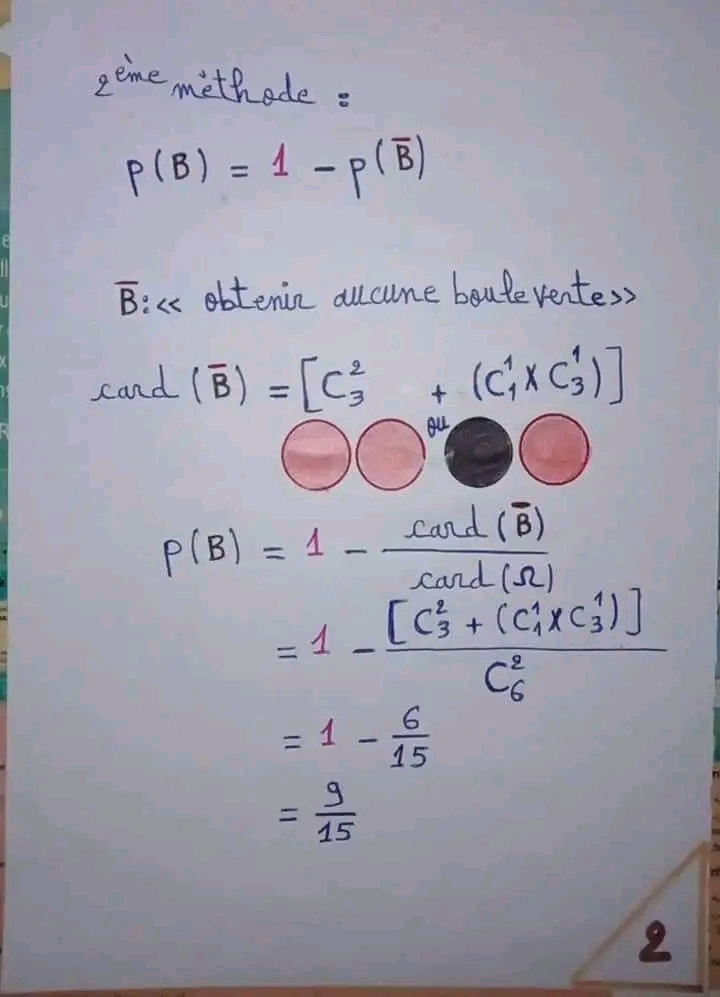 2ème méthode :
p(B) = 1 - p(B̅)
B̅ : << obtenir aucune boule verte>>
card (B̅) = [C²₃ + (C¹₁ x C¹₃)]
ou
p(B) = 1 - card(B̅) / card(Ω)
= 1 - [C²₃ + (C¹₁ x C¹₃)] / C²₆
= 1 - 6/15
= 9/15
2